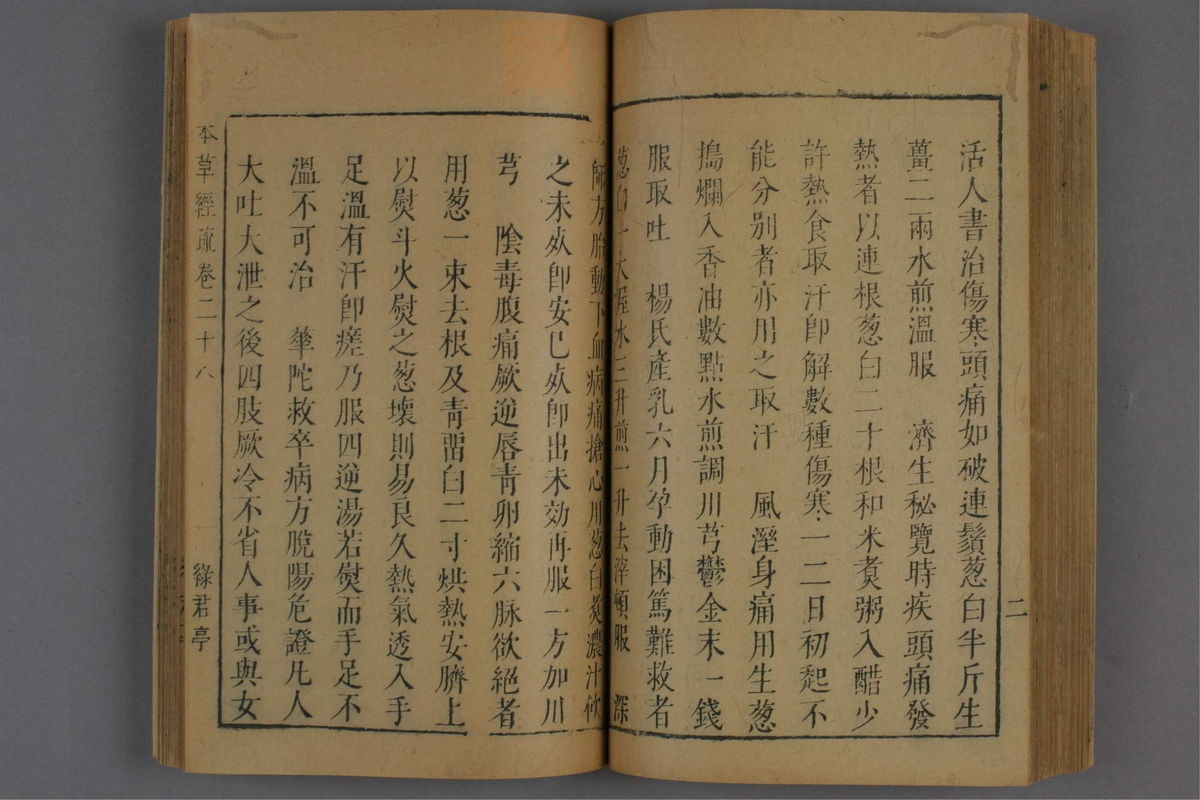 二
活人書治傷寒頭痛如破連鬚葱白半斤生
薑二兩水煎溫服　濟生秘覽時疾頭痛發
熱者以連根葱白二十根和米煑粥入醋少
許熱食取汗卽解數種傷寒一二日初起不
能分別者亦用之取汗　風溼身痛用生葱
搗爛入香油數點水煎調川芎鬱金末一錢
服取吐　楊氏產乳六月孕動困篤難救者
葱白一大握水三升煎一升去滓頓服　深
師方胎動下血病痛搶心用葱白煑濃汁飲
之未死卽安已死卽出未効再服一方加川
芎　陰毒腹痛厥逆唇靑卵縮六脉欲絕者
用葱一束去根及靑畱白二寸烘熱安臍上
以熨斗火熨之葱壞則易良久熱氣透入手
足溫有汗卽瘥乃服四逆湯若熨而手足不
溫不可治　華陀救卒病方脫陽危證凡人
大吐大泄之後四肢厥冷不省人事或與女
本草經疏卷二十八
綠君亭